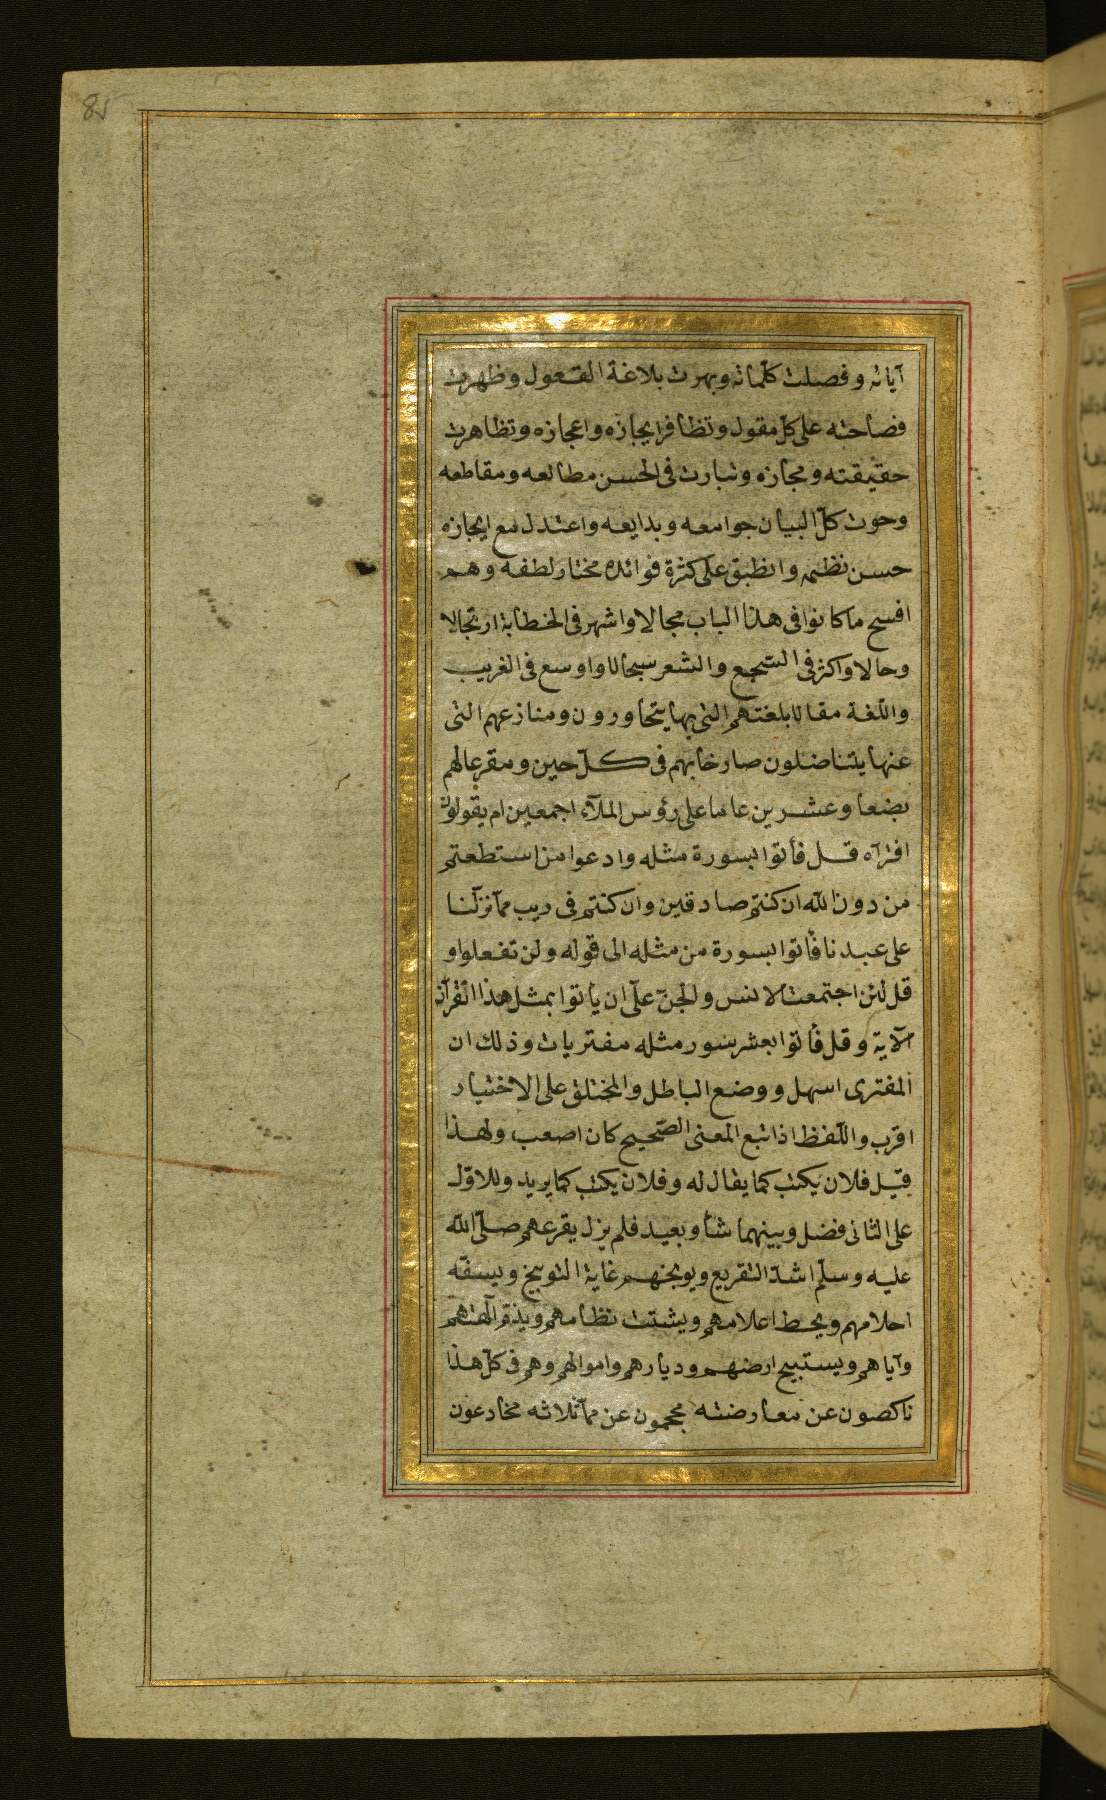 85
آياته وفصلت كلّماته وبهرت بلاغة القعول وظهرت
فصاحته على كلّ مقول وتظافر ايجازه واعجازه وتظاهرت
حقيقته ومجازه وتبارت فى الحسن مطالعه ومقاطعه
وحوت كلّ البيان جوامعه وبدايعه واعتدل مع ايجازه
حسن نظمه وانطبق على كثرة فوائده مختار لطفه وهم
افسح ما كانوا فى هذا الباب مجالا واشهر فى الخطابة ارتجالا
وحالا واكثر فى السّجع والشعر سجالا واوسع فى الغريب
واللّغة مقالا بلغتهم التى بها يتحاورون ومنازعهم التى
عنها يتناضلون صارخا بهم فى كلّ حين ومقرعا لهم
بضعا وعشرين عاما على رؤس الملآء اجمعين ام يقولون
افتراه قل فأتوا بسورة مثله وادعوا من استطعتم
من دون الله ان كنتم صادقين وان كنتم فى ريب ممّا نزّلنا
على عبدنا فأتوا بسورة من مثله الى قوله ولن تفعلوا و
قل لئن اجتمعت الانس والجنّ على ان يأتوا بمثل هذا القرآن
الآية وقل فأتوا بعشر سور مثله مفتريات وذلك ان
المفترى اسهل ووضع الباطل والمختلق على الاختيار
اقرب واللّفظ اذا تبع المعنى الصّحيح كان اصعب ولهذا
قيل فلان يكتب كما يقال له وفلان يكتب كما يريد وللاوّل
على الثانى فضل وبينهما شأو بعيد فلم يزل يقرعهم صلّى الله
عليه وسلّم اشدّ التقريع ويوبخهم غاية التوبيخ ويسفّه
احلامهم ويحط اعلامهم ويشتت نظامهم ويذمّ آلهتهم
وآياهم ويستبيح ارضهم وديارهم واموالهم وهم فى كلّ هذا
ناكصون عن معارضته محجمون عن مماثلاته مخادعون